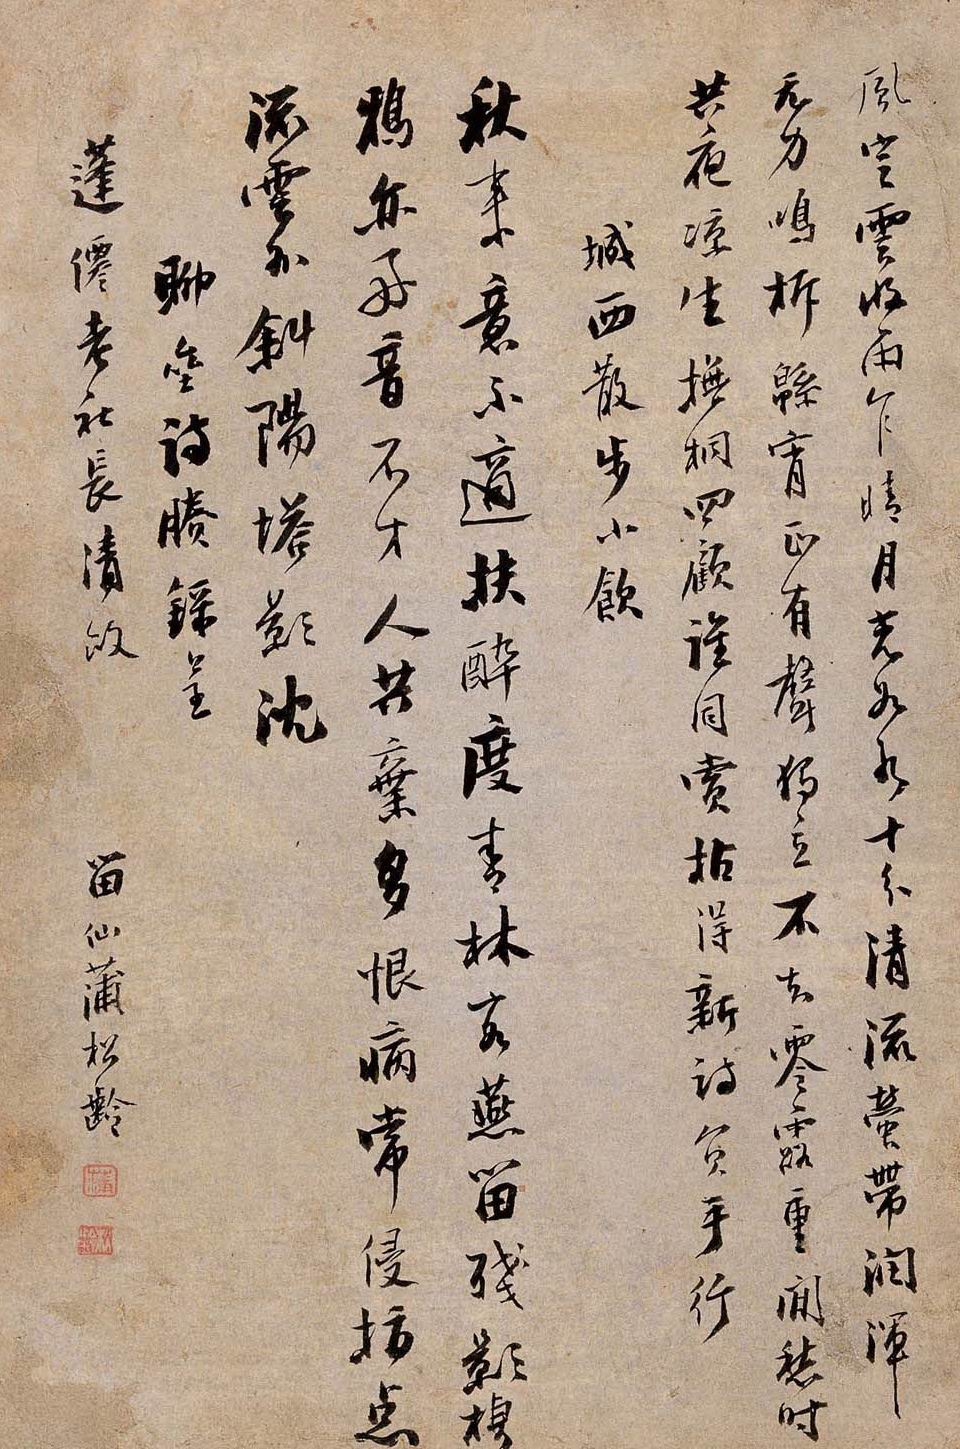 風定雲收雨乍晴月光如水十分清流螢帶潤渾
無力鳴柝緜宵正有聲獨立不知零露重閒愁時
共夜凉生撫桐四顧誰同賞拈得新詩負手行
城西散步小飲
秋来意不適扶醉度青林客燕留殘影棲
鴉亦好音不才人共棄多恨病常侵指点
流雲外斜陽塔影沈
聊齋詩賸錄呈
蓬僊老社長清政
留仙蒲松齡